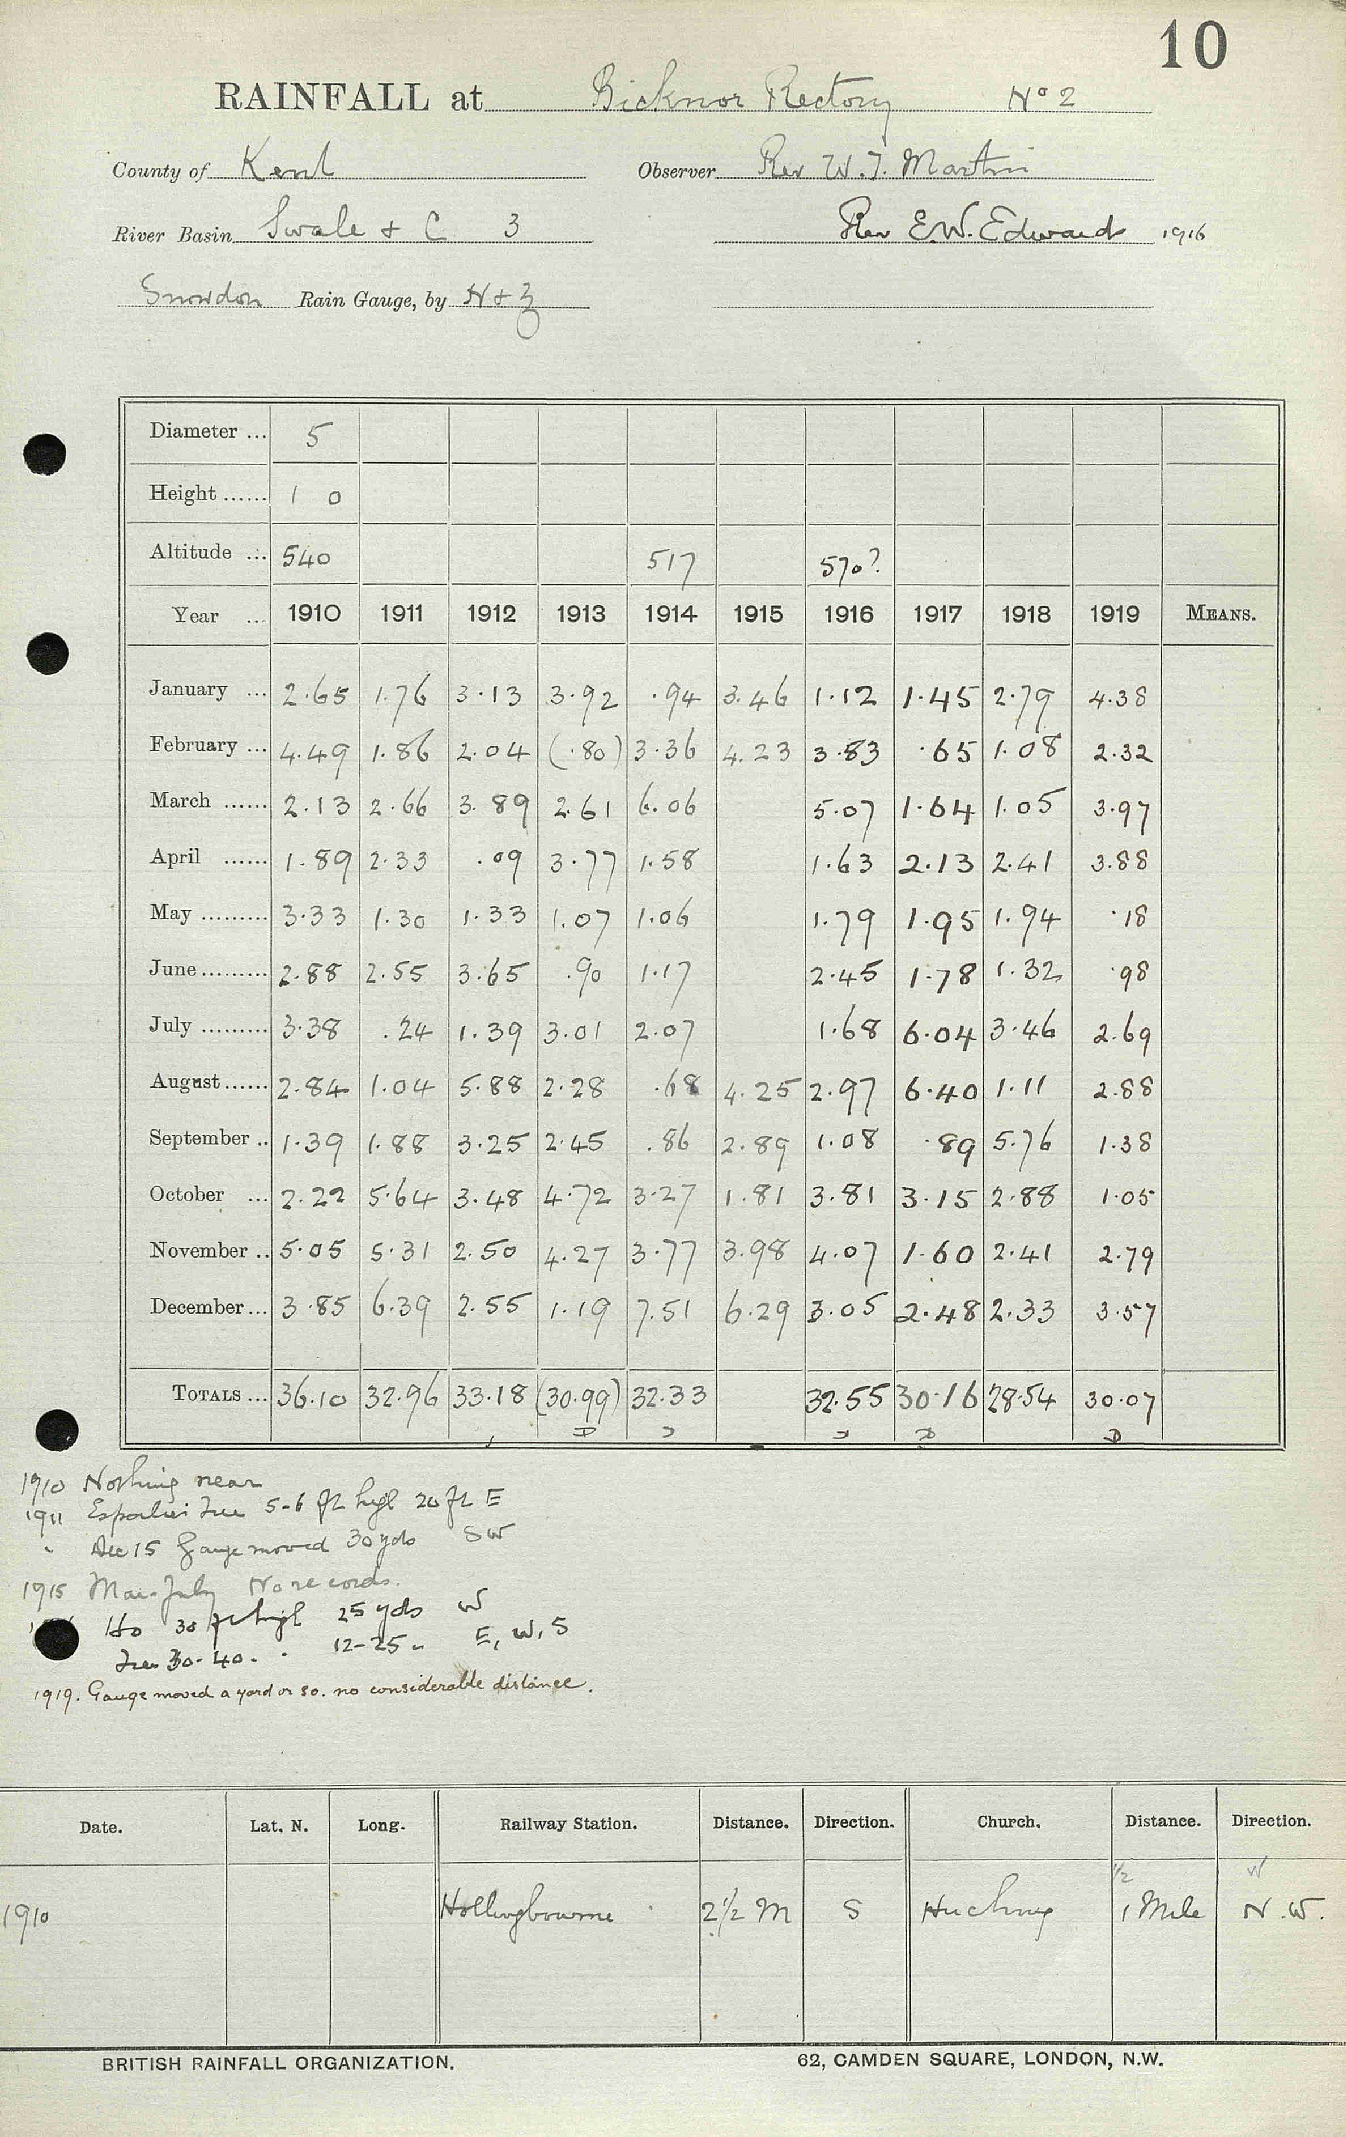 10
RAINFALL at Bicknor Rectory No 2
County of Kent Observer Rev W. J. Martin
River Basin Swale + C 3 Rev E.W. Edwards 1916
Snowdon Rain Gauge, by N + Z
Diameter ... 5
Height ...... 1 0
Altitude ... 540 517 570?
Year ... 1910 1911 1912 1913 1914 1915 1916 1917 1918 1919 MEANS.
January ... 2.65 1.76 3.13 3.92 .94 3.46 1.12 1.45 2.79 4.38
February ... 4.49 1.86 2.04 (.80) 3.36 4.23 3.83 .65 1.08 2.32
March ...... 2.13 2.66 3.89 2.61 6.06 5.07 1.64 1.05 3.97
April ...... 1.89 2.33 .09 3.77 1.58 1.63 2.13 2.41 3.88
May ......... 3.33 1.30 1.33 1.07 1.06 1.79 1.95 1.94 .18
June ......... 2.88 2.55 3.65 .90 1.17 2.45 1.78 1.32 .98
July ......... 3.38 .24 1.39 3.01 2.07 1.68 6.04 3.46 2.69
August ...... 2.84 1.04 5.88 2.28 .68 4.25 2.97 6.40 1.11 2.88
September .. 1.39 1.88 3.25 2.45 .86 2.89 1.08 .89 5.76 1.38
October ... 2.22 5.64 3.48 4.72 3.27 1.81 3.81 3.15 2.88 1.05
November .. 5.05 5.31 2.50 4.27 3.77 3.98 4.07 1.60 2.41 2.79
December ... 3.85 6.39 2.55 1.19 7.51 6.29 3.05 2.48 2.33 3.57
TOTALS ... 36.10 32.96 33.18 (30.99) 32.33 32.55 30.16 28.54 30.07
D D D
1910 Nothing near
1911 Espalier Tree 5-6 ft high 20 ft E
" Dec 15 Gauge moved 30 yds SW
1915 Mar-July No records.
Ho 30 ft high 25 yds W
Trees 30-40 " " 12-25 " E, W, S
1919. Gauge moved a yard or so. no considerable distance.
Date. Lat. N. Long. Railway Station. Distance. Direction. Church. Distance. Direction.
1/2 W
1910 Hollingbourne 2 1/2 M S Hucking 1 Mile N.W.
BRITISH RAINFALL ORGANIZATION. 62, CAMDEN SQUARE, LONDON, N.W.